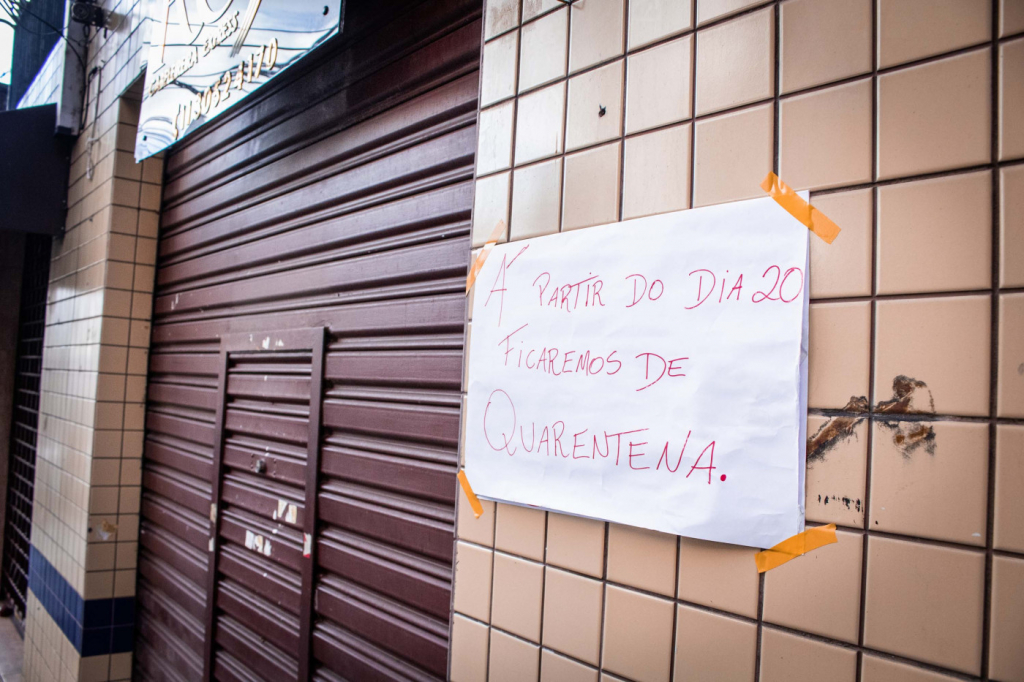 (11)3052-1170
A PARTIR DO DIA 20
FICAREMOS DE
QUARENTENA.